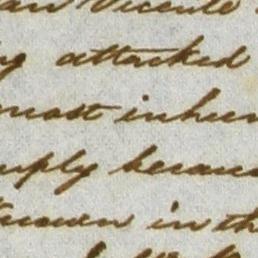 an Vicente
attacked
most inhum
mply becaus
known in th